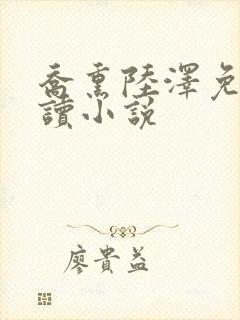 喬熏陸澤免
讀小說
廖貴益